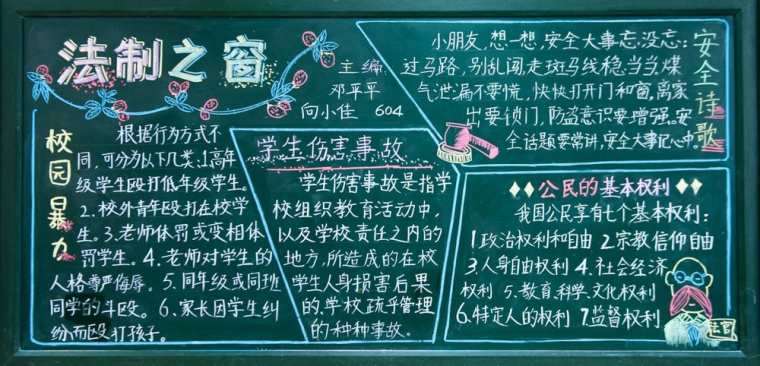 法制之窗
主编
邓平平
向小佳 604
安全诗歌
小朋友，想一想，安全大事忘没忘：
过马路，别乱闯，走斑马线稳当当，煤
气泄漏不要慌，快快打开门和窗，离家
出要锁门，防盗意识要增强。安
全话题要常讲，安全大事记心中。
校园暴力
根据行为方式不
同，可分为以下几类：1.高年
级学生殴打低年级学生。
2.校外青年殴打在校学
生。3.老师体罚或变相体
罚学生。4.老师对学生的
人格尊严侮辱。5.同年级或同班
同学的斗殴。6.家长因学生纠
纷而殴打孩子。
学生伤害事故
学生伤害事故是指学
校组织教育活动中，
以及学校责任之内的
地方，所造成的在校
学生人身损害后果
的，学校疏乎管理
的种种事故。
公民的基本权利
我国公民享有七个基本权利：
1.政治权利和自由 2.宗教信仰自由
3.人身自由权利 4.社会经济
权利 5.教育，科学，文化权利
6.特定人的权利 7.监督权利
法官